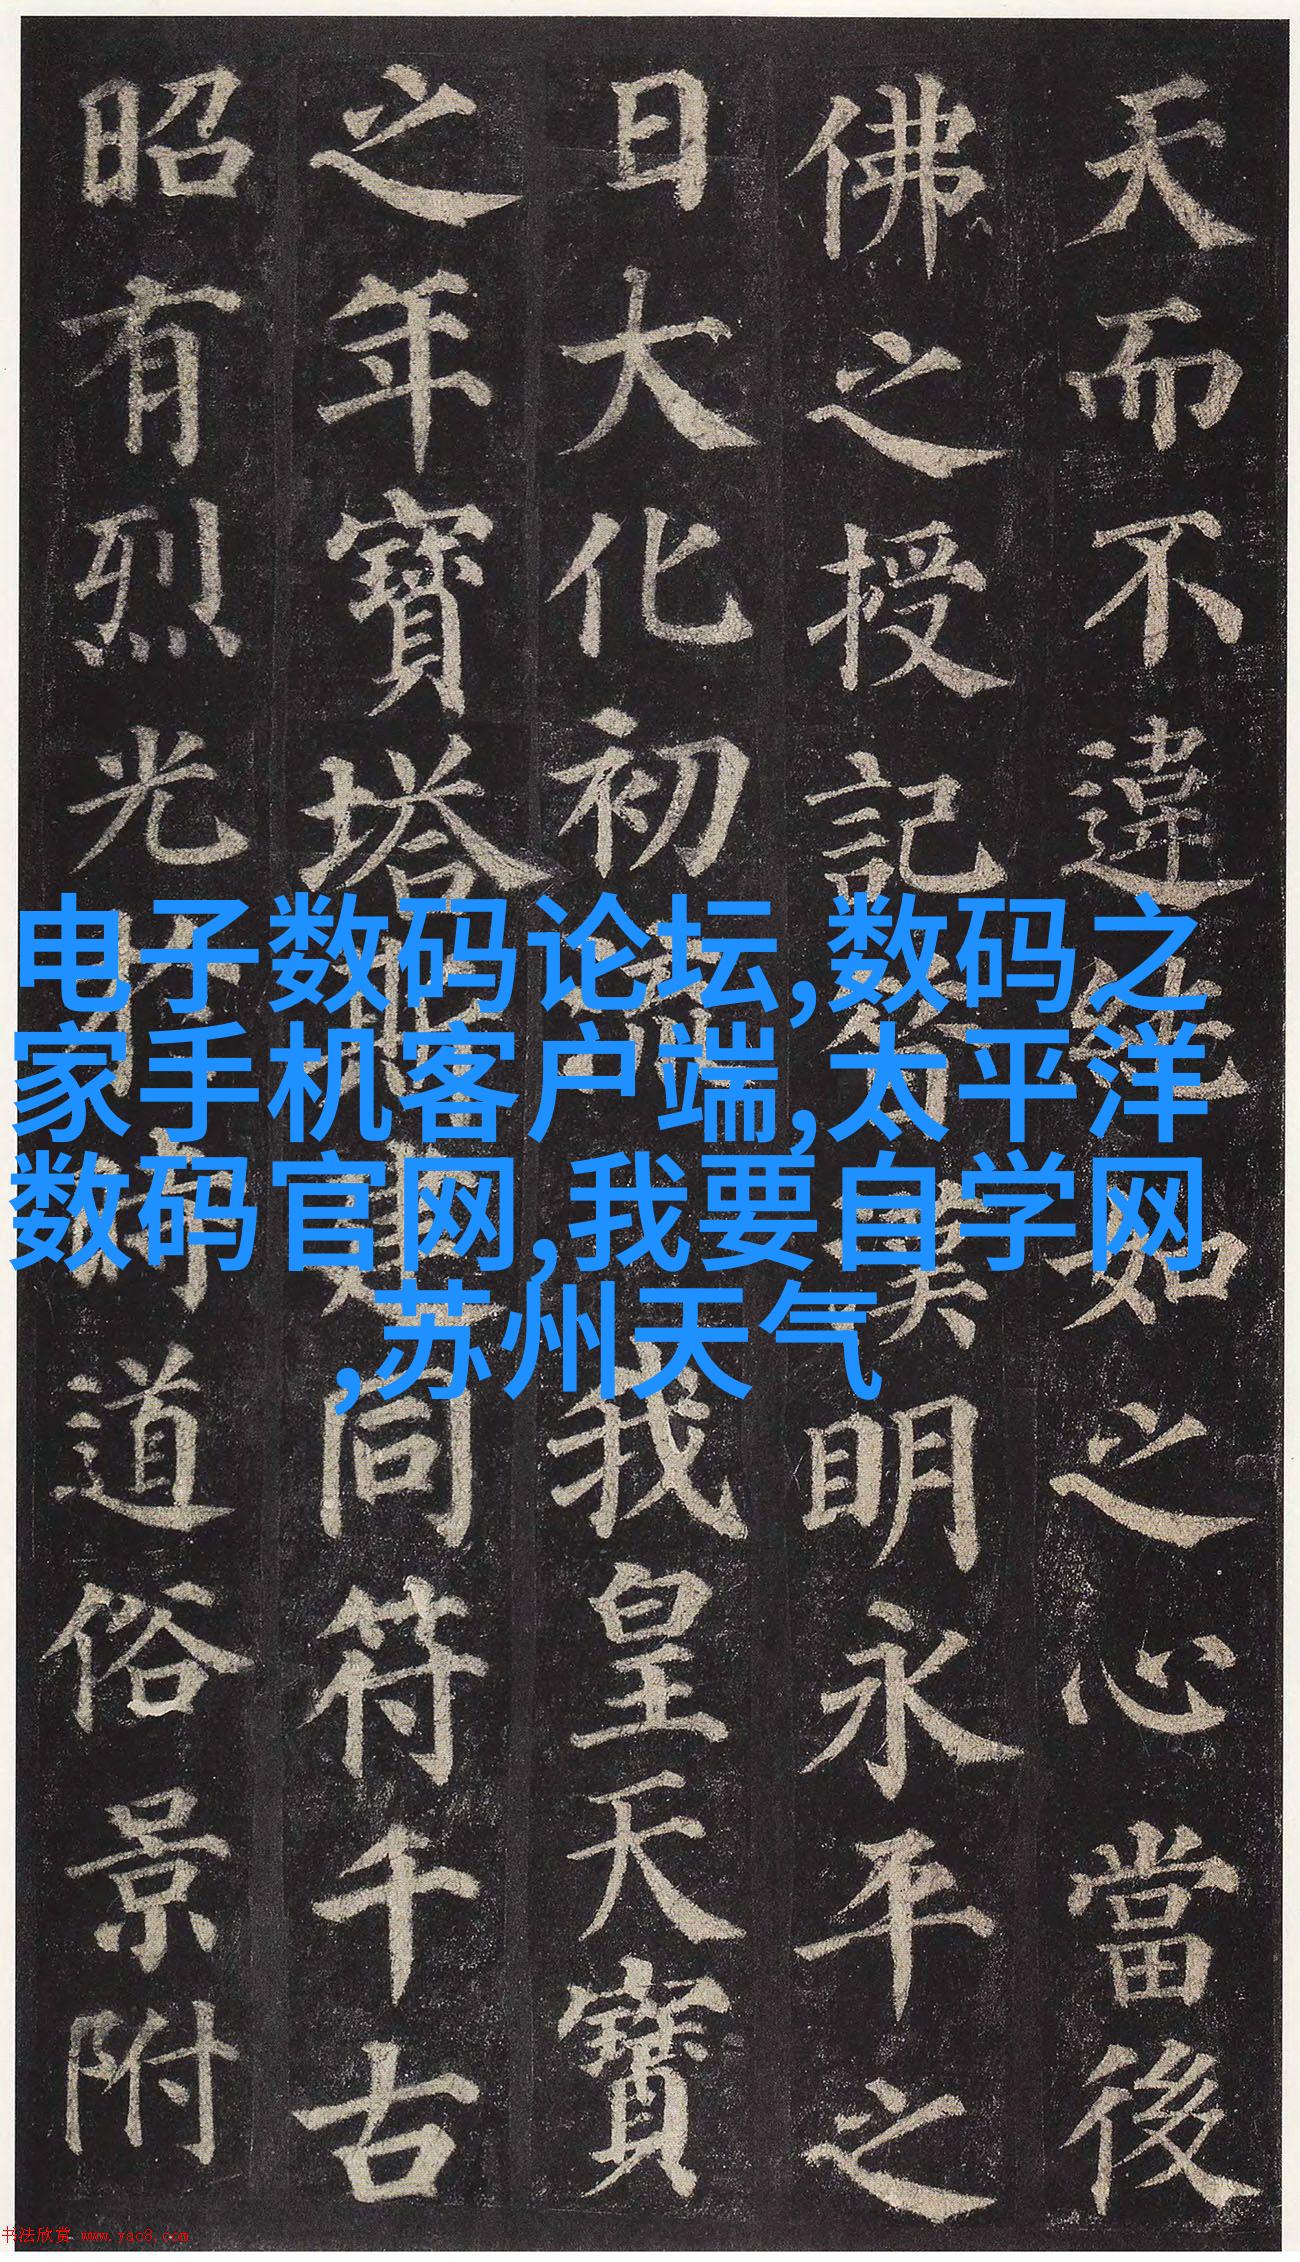 天而不違純如之心當後
佛之授記昔漢明永平之
日大化初流我皇天寶
之年寶塔斯建同符千古
昭有烈光於時道俗景附
电子数码论坛,数码之
家手机客户端,太平洋
数码官网,我要自学网
,苏州天气
书法欣赏 www.yac8.com